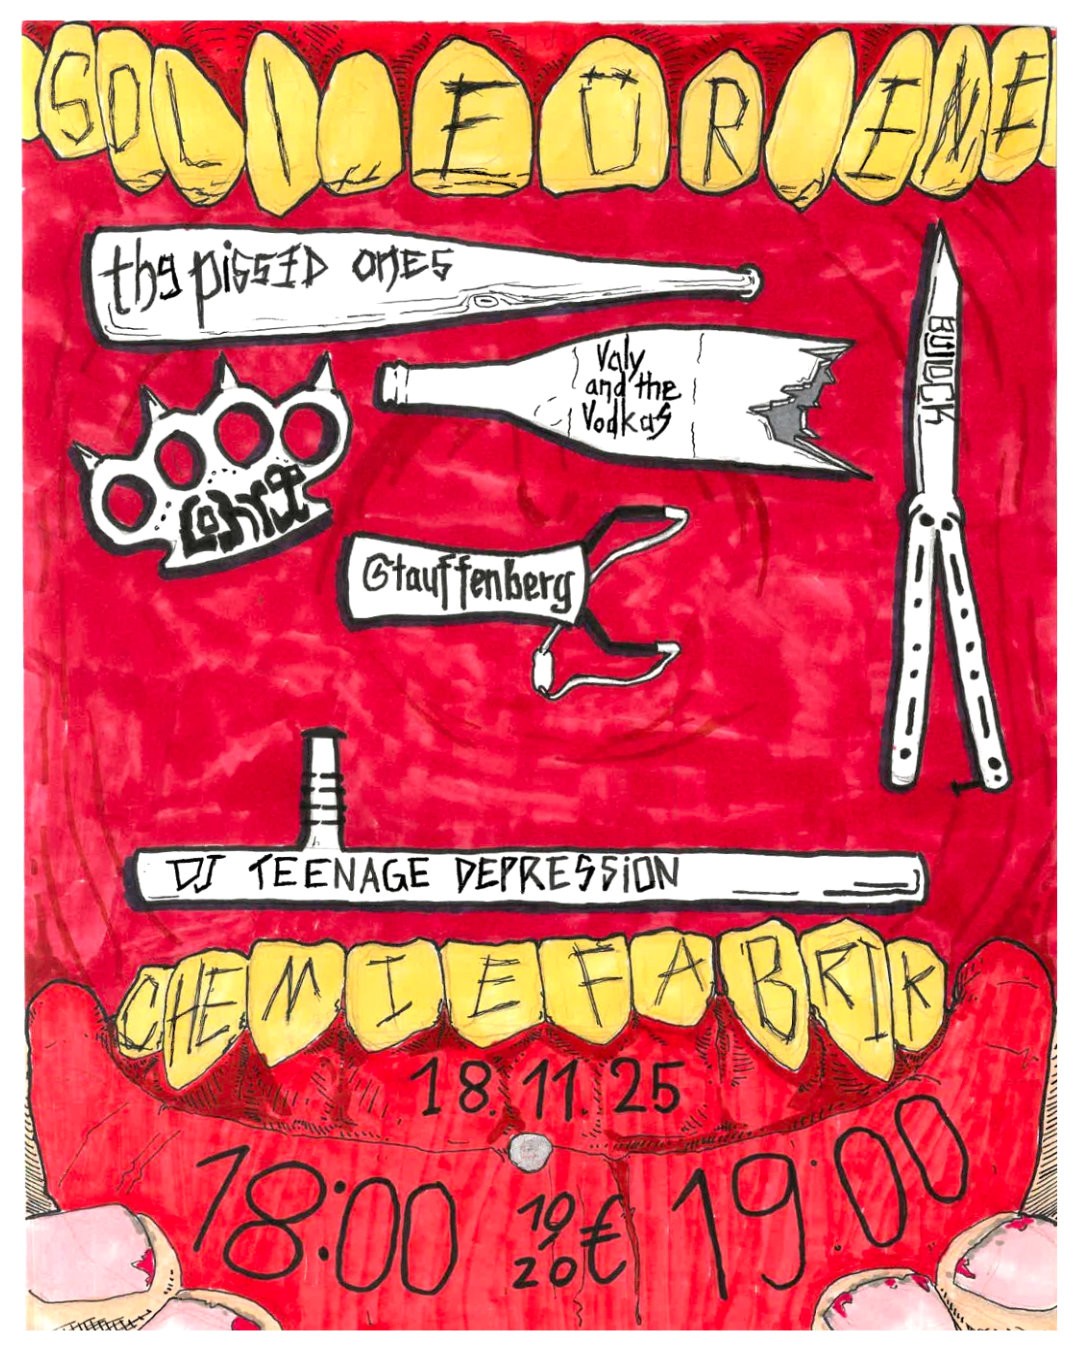 SOLI FÜR ENE
thy pissED ones
Valy
and the
Vodkas
Stauffenberg
DJ TEENAGE DEPRESSiON
CHEMIEFABRIK
18.11.25
18:00
10/20€
19:00